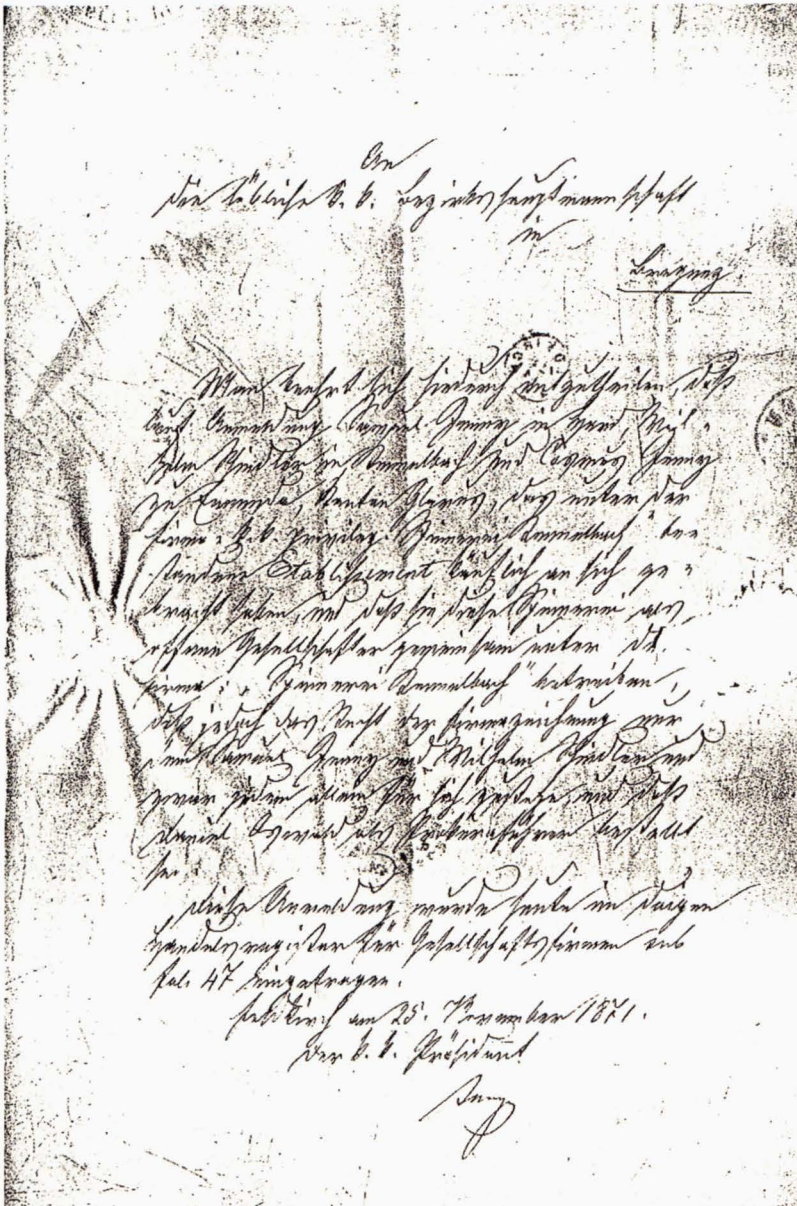 An
die löbliche k. k. Bezirkshauptmannschaft
in
Bregenz.
Man beehrt sich hiedurch mitzutheilen, daß
laut Anmeldung Samuel Jenny in Hard, Wil-
helm Schindler in Kennelbach und Cosmus Jenny
zu Ennenda, Kanton Glarus, das unter der
Firma: "k. k. privileg. Spinnerei Kennelbach" be-
standene Etablissement käuflich an sich ge-
bracht haben, und daß sie diese Spinnerei als
offene Gesellschafter gemeinsam unter der
Firma: "Spinnerei Kennelbach" betreiben,
daß jedoch das Recht der Firmazeichnung nur
dem Samuel Jenny und Wilhelm Schindler und
zwar jedem allein für sich zustehe, und daß
Daniel Oswald als Prokuraführer bestellt
sei.
Diese Anmeldung wurde heute im
Handelsregister für Gesellschaftsfirmen sub
fol. 47 eingetragen.
Feldkirch am 25. November 1871.
Der k. k. Präsident